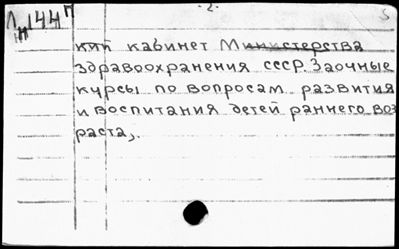 - 2. -
кий кабинет Министерства
здравоохранения СССР. Заочные
курсы по вопросам развития
и воспитания детей раннего воз
раста,